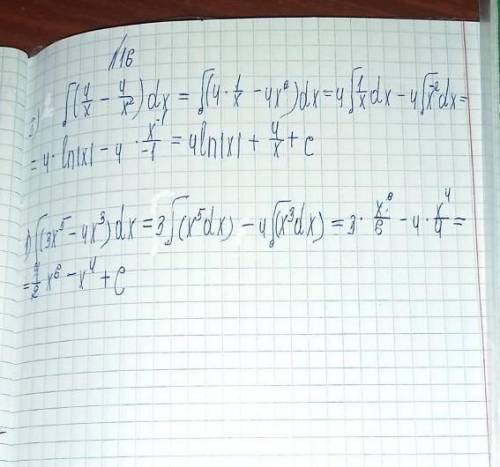 116
∫(4/x − 4/x²)dx = ∫(4·1/x − 4x²)dx = 4∫1/x dx − 4∫x⁻²dx =
= 4·ln|x| − 4·x⁻¹/−1 = 4ln|x| + 4/x + C
∫(3x⁵ − 4x³)dx = 3∫(x⁵dx) − 4∫(x³dx) = 3·x⁶/6 − 4·x⁴/4 =
= 1/2 x⁶ − x⁴ + C